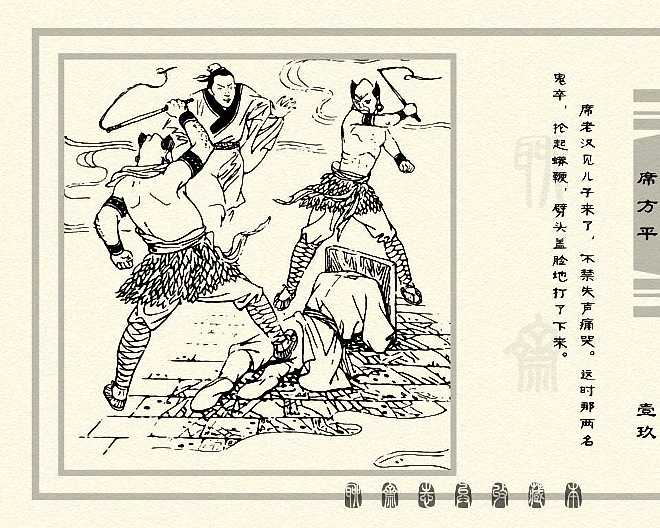 席老汉见儿子来了，不禁失声痛哭。这时那两名
鬼卒，抡起蟒鞭，劈头盖脸地打了下来。
席方平
壹玖
聊斋志异收藏本